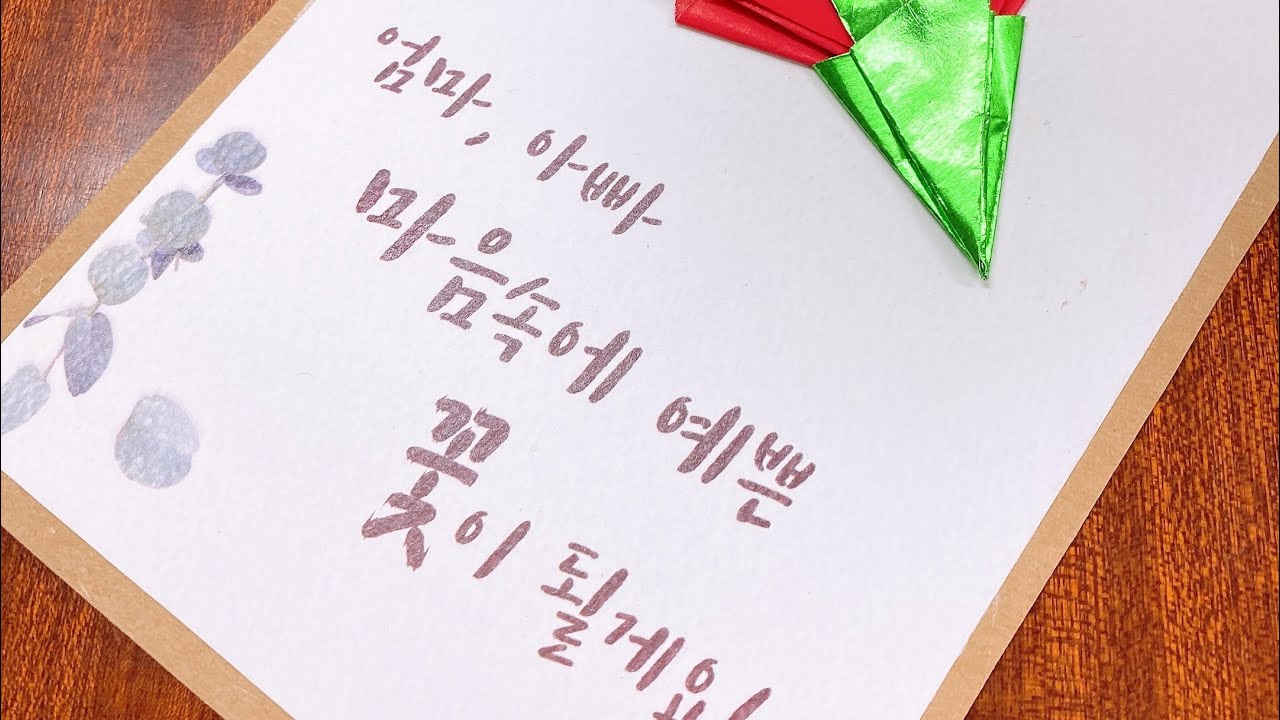 엄마, 아빠
마음속에 예쁜
꽃이 될거예